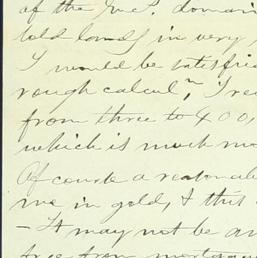 of the domain
told lands in very,
I would be satisfie
rough calculn, I re
from three to 400,
which is much mo
Of course a reasonabl
me in gold, & this
– It may not be an
free from mortgag